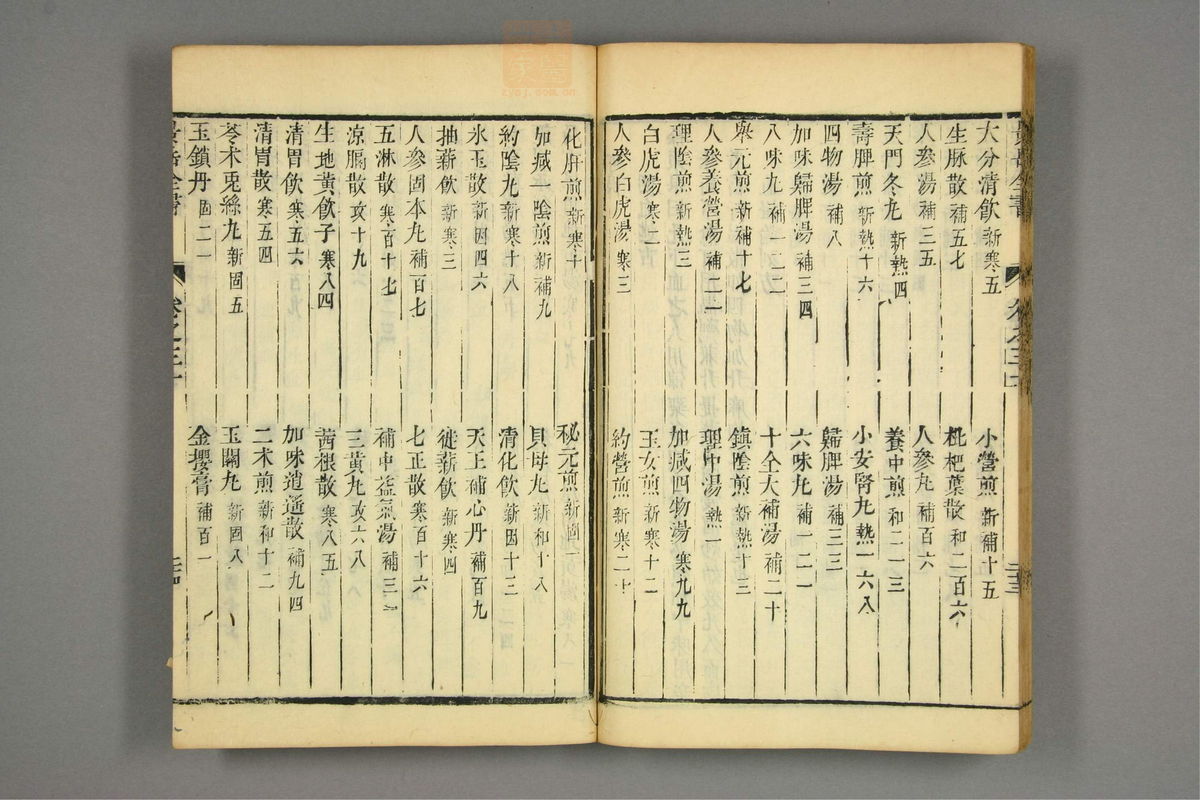 大分清飲新寒五 小營煎新補十五
生脉散補五七 枇杷葉散和二百六
人參湯補三五 人參丸補百六
天門冬丸新熱四 養中煎和二一三
壽脾煎新熱十六 小安腎丸熱一六八
四物湯補八 歸脾湯補三三
加味歸脾湯補三四 六味丸補一二一
八味丸補一二二 十全大補湯補二十
舉元煎新補十七 鎮陰煎新熱十三
人參養營湯補二一 理中湯熱一
理陰煎新熱三 加減四物湯寒九九
白虎湯寒二 玉女煎新寒十二
人參白虎湯寒三 約營煎新寒二十
化肝煎新寒十 秘元煎新固一
加減一陰煎新補九 貝母丸新和十八
約陰丸新寒十八 清化飲新因十三
氷玉散新因四六 天王補心丹補百九
抽薪飲新寒三 徙薪飲新寒四
人參固本丸補百七 七正散寒百十六
五淋散寒百十七 補中益氣湯補三一
涼膈散攻十九 三黃丸攻六八
生地黃飲子寒八四 茜根散寒八五
清胃飲寒五六 加味逍遙散補九四
清胃散寒五四 二朮煎新和十二
苓朮兎絲丸新固五 玉關丸新固八
玉鎖丹固二一 金櫻膏補百一